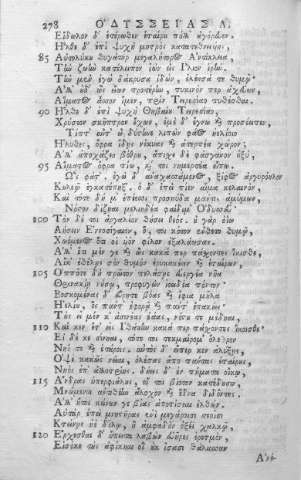 278 ΟΔΥΣΣΕΙΑΣ Λ.
Εἴδωλον δ' ἑτέρωθεν ἑταίρου πόλλ' ἀγόρευεν.
Ἦλθε δ' ἐπὶ ψυχὴ μητρὸς κατατεθνηυίης,
85 Αὐτολύκου θυγάτηρ μεγαλήτορος Ἀντίκλεια,
Τὴν ζωὴν κατέλειπον ἰὼν εἰς Ἴλιον ἱρήν.
Τὴν μὲν ἐγὼ δάκρυσα ἰδὼν, ἐλέησά τε θυμῷ·
Ἀλλ' οὐδ' ὣς εἴων προτέρην, πυκινόν περ ἀχεύων,
Αἵματος ἆσσον ἴμεν, πρὶν Τειρεσίαο πυθέσθαι.
90 Ἦλθε δ' ἐπὶ ψυχὴ Θηβαίου Τειρεσίαο,
Χρύσεον σκῆπτρον ἔχων, ἐμὲ δ' ἔγνω καὶ προσέειπε,
Τίπτ' αὖτ' ὦ δύστηνε λιπὼν φάος ἠελίοιο
Ἤλυθες, ὄφρα ἴδῃ νέκυας καὶ ἀτερπέα χῶρον;
Ἀλλ' ἀποχάζεο βόθρου, ἄπισχε δὲ φάσγανον ὀξὺ,
95 Αἵματος ὄφρα πίω, καί τοι νημερτέα εἴπω.
Ὣς φάτ'· ἐγὼ δ' ἀναχασσάμενος, ξίφος ἀργυρόηλον
Κουλεῷ ἐγκατέπηξ'. ὁ δ' ἐπεὶ πίεν αἷμα κελαινὸν,
Καὶ τότε δή μ' ἐπέεσσι προσηύδα μάντις ἀμύμων,
Νόστον δίζηαι μελιηδέα φαίδιμ' Ὀδυσσεῦ·
100 Τὸν δέ τοι ἀργαλέον θήσει θεός· οὐ γὰρ οἴω
Λήσειν Ἐννοσίγαιον, ὅ τοι κότον ἔνθετο θυμῷ,
Χωόμενος ὅτι οἱ υἱὸν φίλον ἐξαλάωσας.
Ἀλλ' ἔτι μέν κε καὶ ὣς κακά περ πάσχοντες ἵκοισθε,
Αἴκ' ἐθέλῃς σὸν θυμὸν ἐρυκακέειν καὶ ἑταίρων,
105 Ὁππότε δὴ πρῶτον πελάσῃς εὐεργέα νῆα
Θρινακίῃ νήσῳ, προφυγὼν ἰοειδέα πόντον·
Βοσκομένας δ' εὕρητε βόας καὶ ἴφια μῆλα
Ἠελίου, ὃς πάντ' ἐφορᾷ καὶ πάντ' ἐπακούει.
Τὰς εἰ μέν κ' ἀσινέας ἐάας, νόστου τε μέδηαι,
110 Καί κεν ἔτ' εἰς Ἰθάκην κακά περ πάσχοντες ἵκοισθε·
Εἰ δέ κε σίνηαι, τότε τοι τεκμαίρομ' ὄλεθρον
Νηΐ τε καὶ ἑτάροις· αὐτὸς δ' εἴπερ κεν ἀλύξῃς,
Ὀψὲ κακῶς νεῖαι, ὀλέσας ἄπο πάντας ἑταίρους,
Νηὸς ἐπ' ἀλλοτρίης. δήεις δ' ἐν πήματα οἴκῳ,
115 Ἄνδρας ὑπερφιάλους, οἵ τοι βίοτον κατέδουσι,
Μνώμενοι ἀντιθέην ἄλοχον καὶ ἕδνα διδόντες.
Ἀλλ' ἤτοι κείνων γε βίας ἀποτίσεαι ἐλθών.
Αὐτὰρ ἐπὴν μνηστῆρας ἐνὶ μεγάροισι τεοῖσι
Κτείνῃς ἠὲ δόλῳ, ἢ ἀμφαδὸν ὀξέϊ χαλκῷ,
120 Ἔρχεσθαι δ' ἤπειτα λαβὼν εὐῆρες ἐρετμὸν,
Εἰσόκε τοὺς ἀφίκηαι οἳ οὐκ ἴσασι θάλασσαν